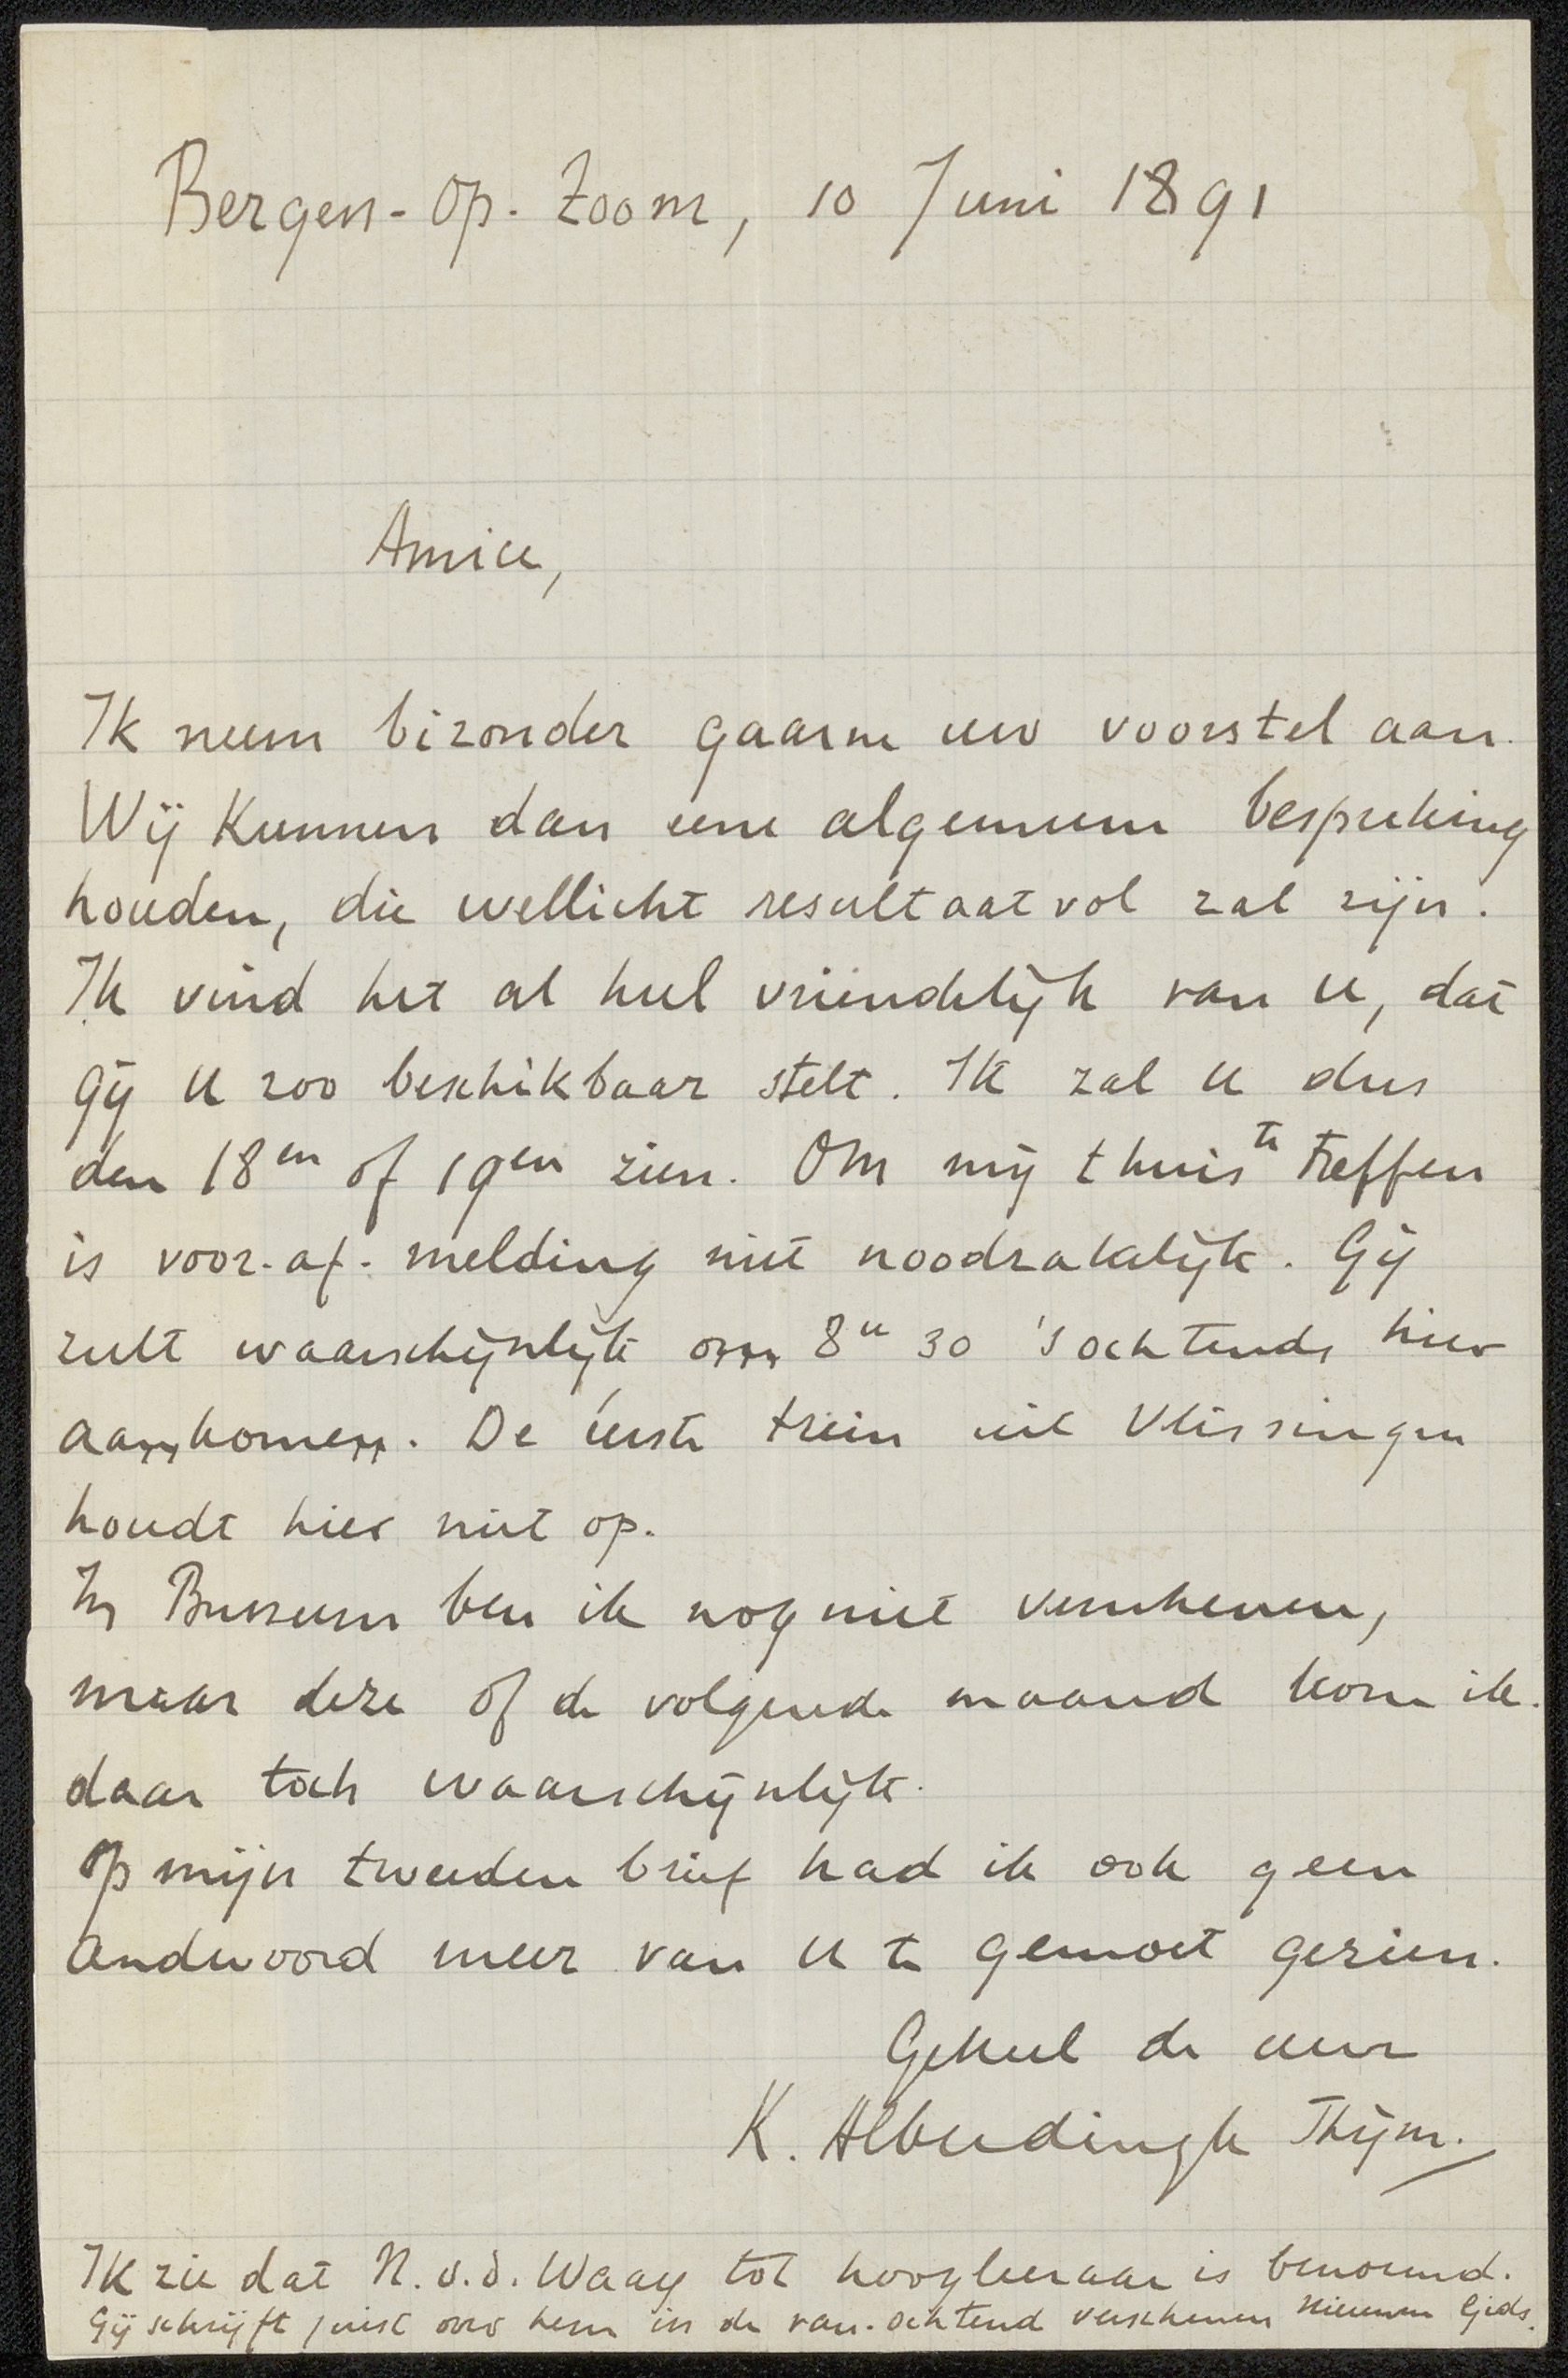 Bergen-op-Zoom, 10 Juni 1891
Amice,
Ik neem bizonder gaarne uw voorstel aan.
Wij kunnen dan eene algemeene bespreking
houden, die wellicht resultaatvol zal zijn.
Ik vind het al heel vriendelijk van u, dat
gij u zoo beschikbaar stelt. Ik zal u dus
den 18en of 19en zien. Om mij thuis te treffen
is voor-af-melding niet noodzakelijk. Gij
zult waarschijnlijk om 8u 30 's ochtends hier
aankomen. De éerste trein uit Vlissingen
houdt hier niet op.
In Bussum ben ik nog niet verschenen,
maar deze of de volgende maand kom ik
daar toch waarschijnlijk.
Op mijn tweeden brief had ik ook geen
andwoord meer van u te gemoet gezien.
Geheel de uwe
K. Alberdingk Thijm.
Ik zie dat N. v. d. Waay tot hoogleeraar is benoemd.
Gij schrijft juist over hem in de van-ochtend verschenen Nieuwen Gids.